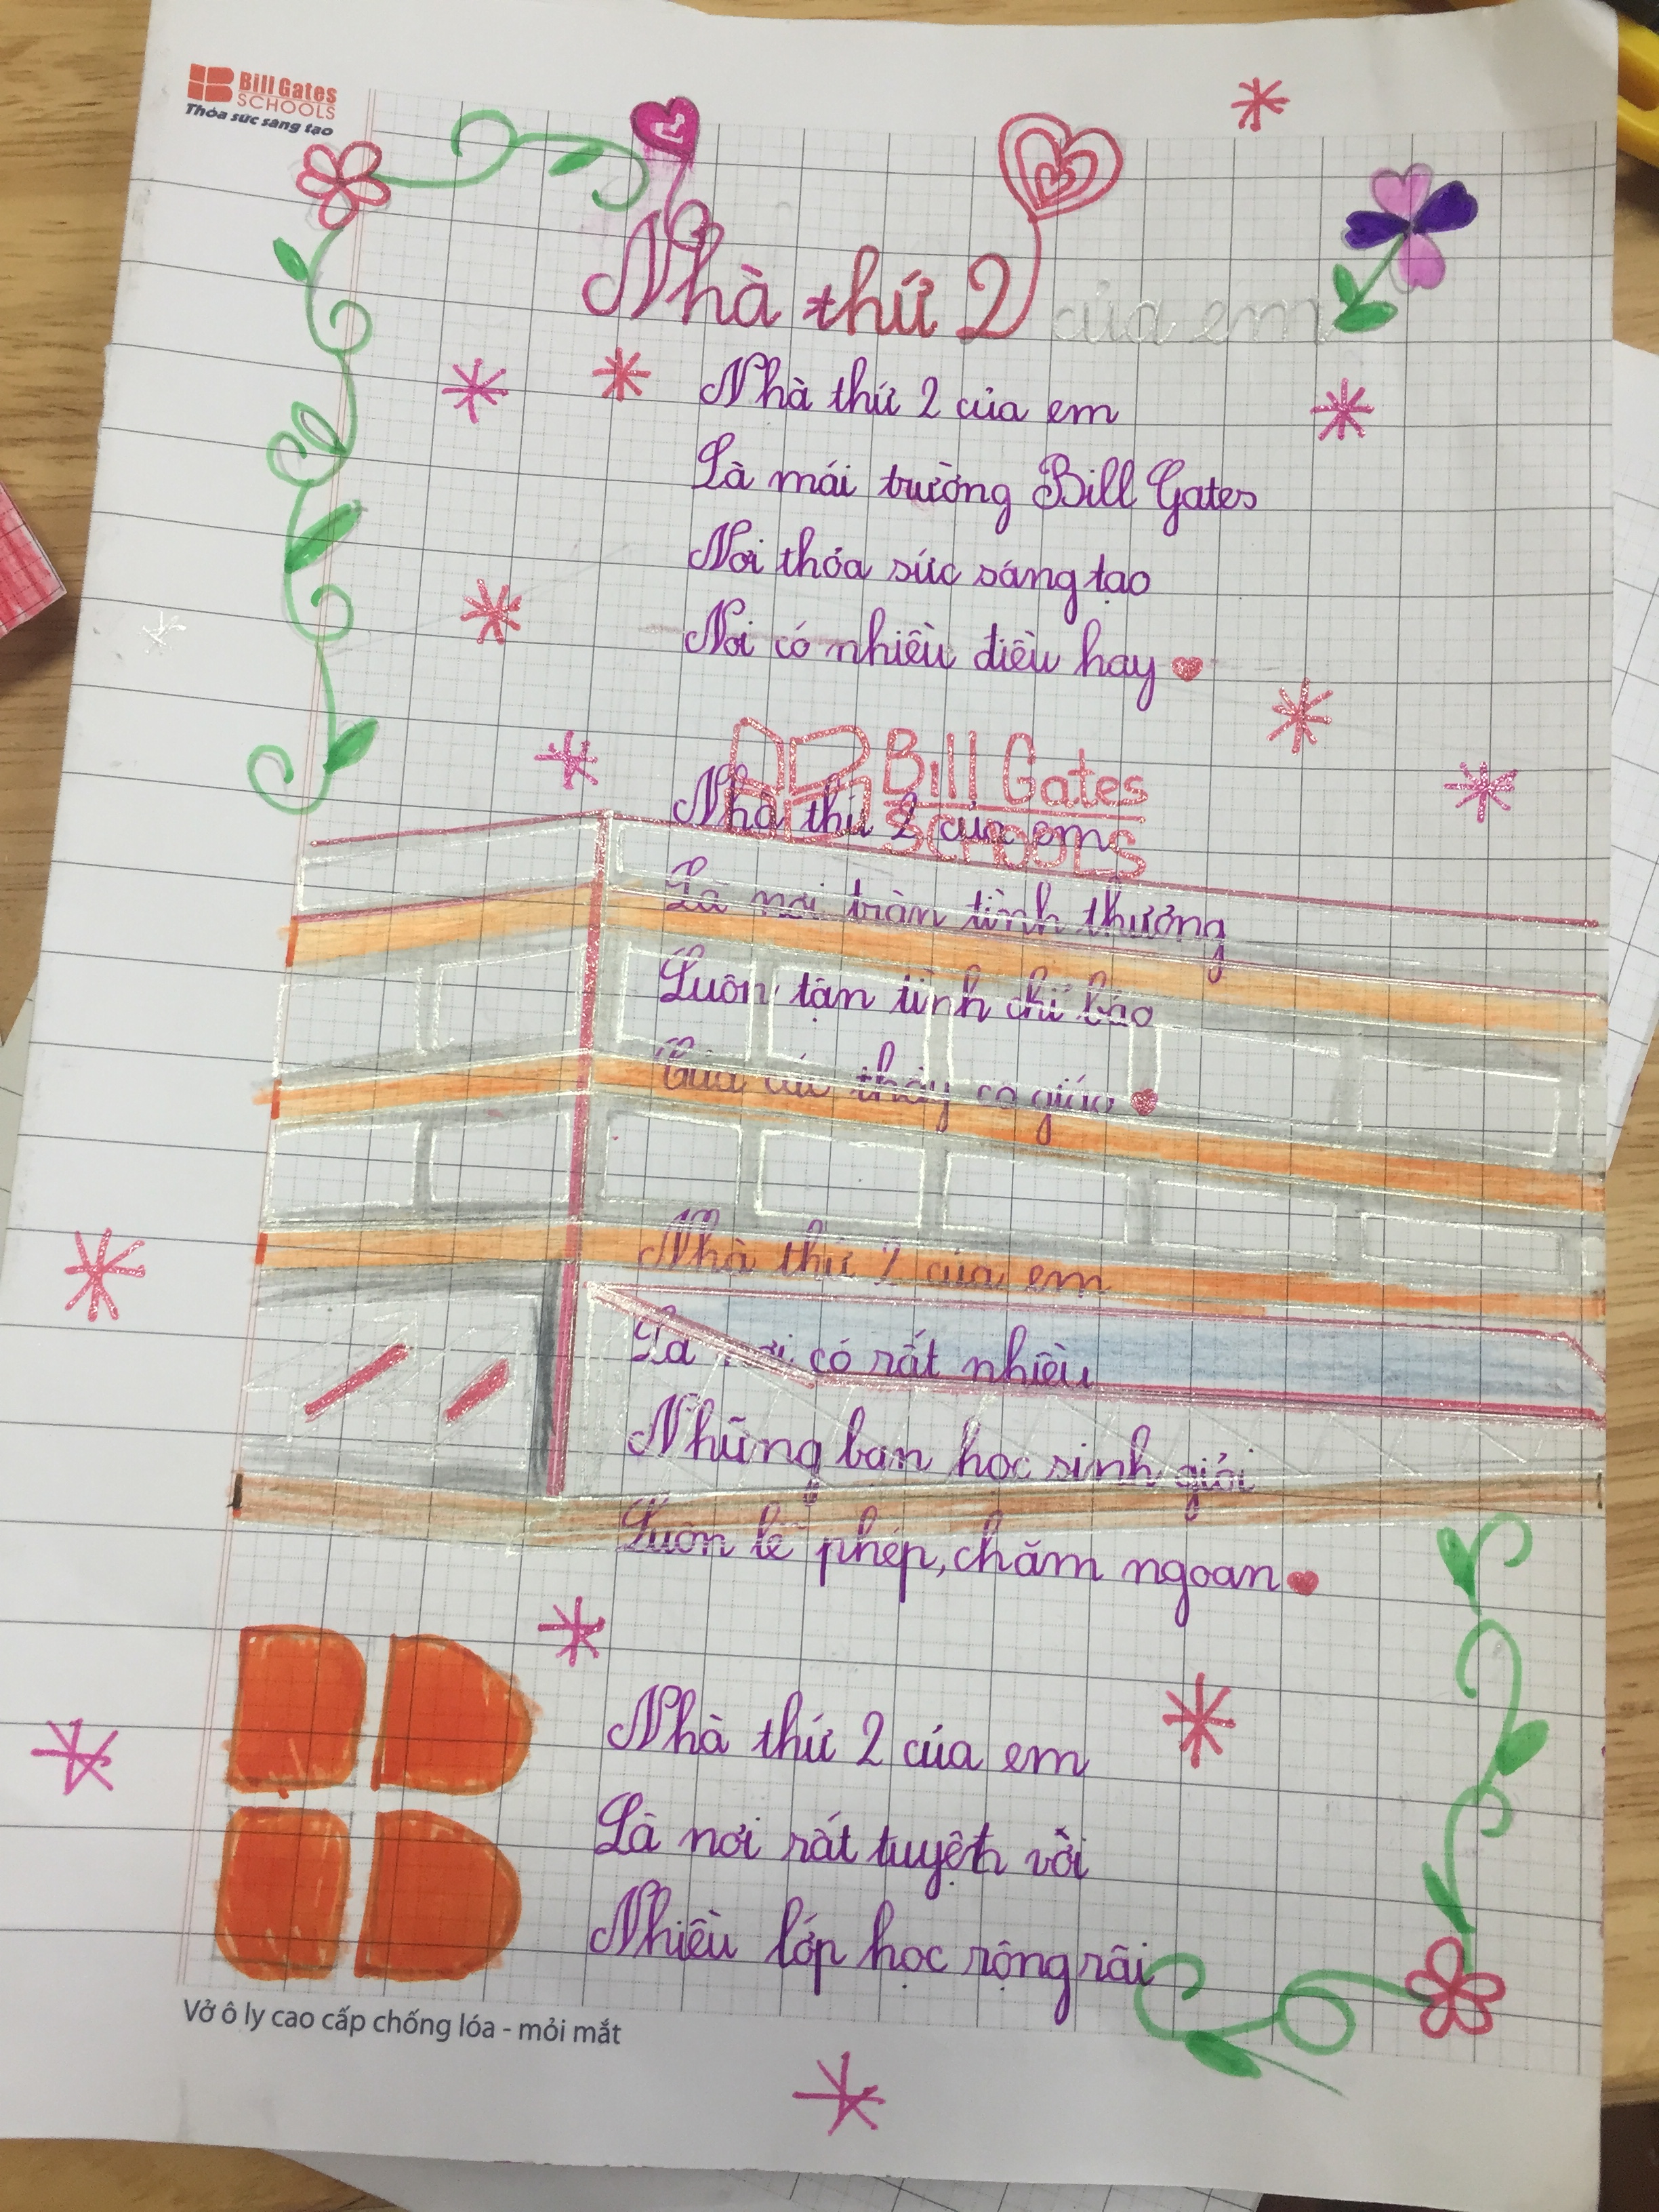 Bill Gates
SCHOOLS
Thỏa sức sáng tạo
Nhà thứ 2 của em
Nhà thứ 2 của em
Là mái trường Bill Gates
Nơi thỏa sức sáng tạo
Nơi có nhiều điều hay
Bill Gates
SCHOOLS
Nhà thứ 2 của em
Là nơi tràn tình thương
Luôn tận tình chỉ bảo
Của các thầy cô giáo
Nhà thứ 2 của em
Là nơi có rất nhiều
Những bạn học sinh giỏi
Luôn lễ phép, chăm ngoan
Nhà thứ 2 của em
Là nơi rất tuyệt vời
Nhiều lớp học rộng rãi
Vở ô ly cao cấp chống lóa - mỏi mắt